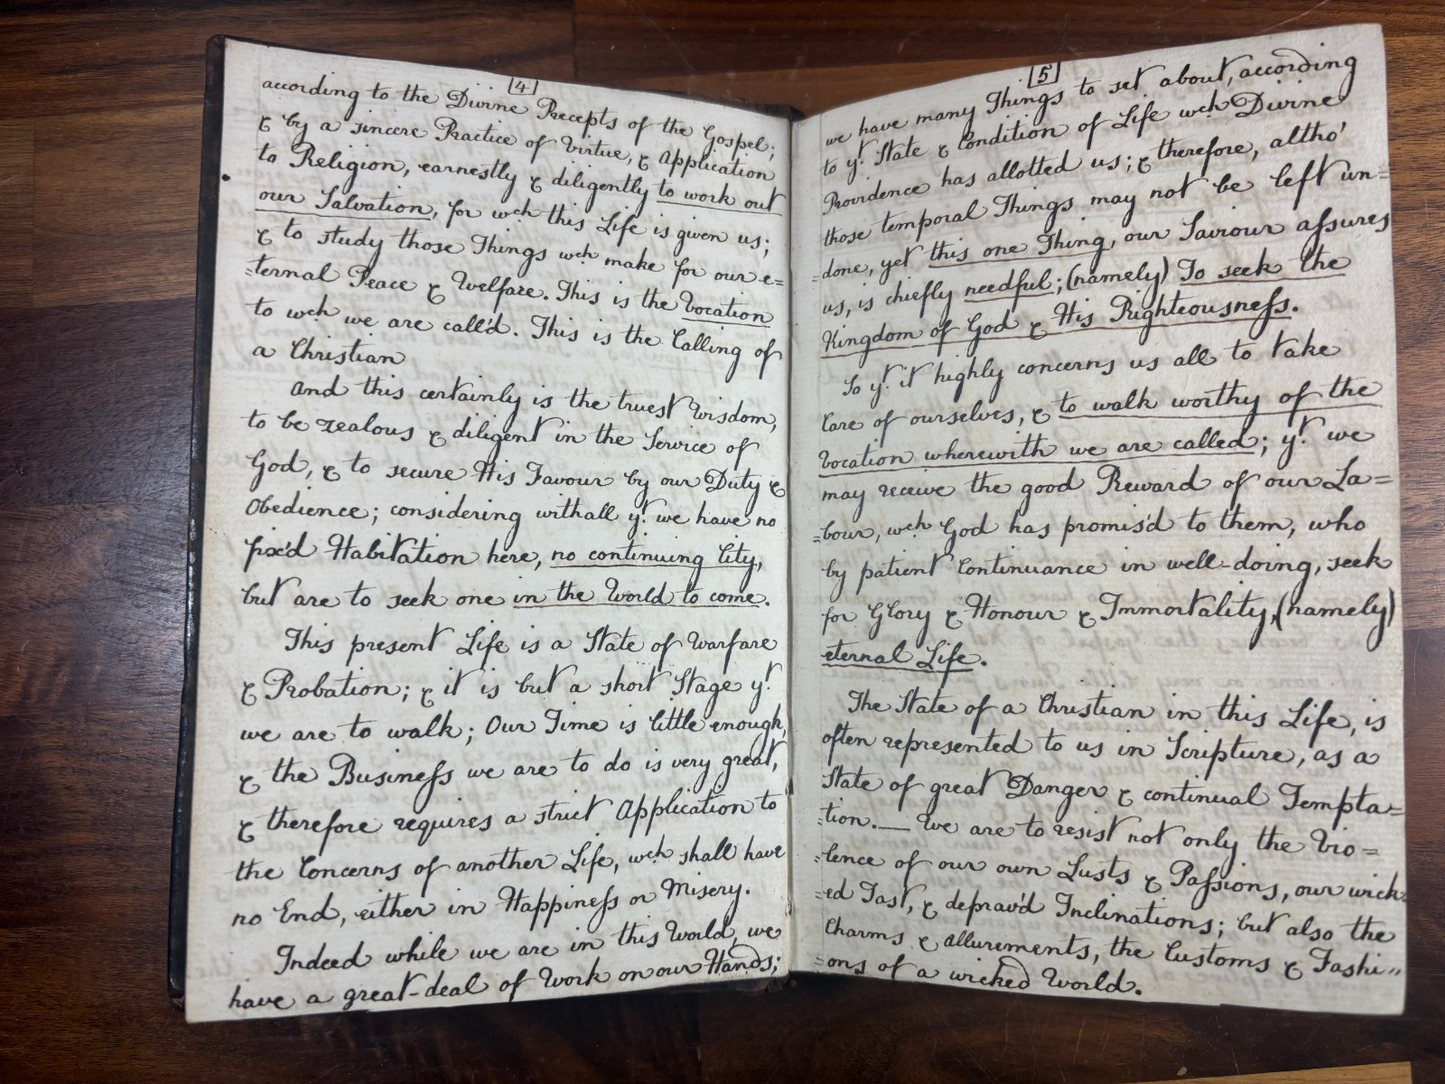 4
according to the Divine Precepts of the Gospel;
& by a sincere Practice of Virtue, & Application
to Religion, earnestly & diligently to work out
our Salvation, for wch this Life is given us;
& to study those Things wch make for our e=
=ternal Peace & Welfare. This is the Vocation
to wch we are call'd. This is the Calling of
a Christian
And this certainly is the truest Wisdom,
to be zealous & diligent in the Service of
God, & to secure His Favour by our Duty &
Obedience; considering withall yt. we have no
fix'd Habitation here, no continuing City,
but are to seek one in the World to come.
This present Life is a State of Warfare
& Probation; & it is but a short Stage yt.
we are to walk; Our Time is little enough,
& the Business we are to do is very great,
& therefore requires a strict Application to
the Concerns of another Life, wch shall have
no End, either in Happiness or Misery.
Indeed while we are in this World, we
have a great-deal of Work on our Hands;
5
we have many Things to set about, according
to yt. State & Condition of Life wch Divine
Providence has allotted us; & therefore, altho'
those temporal Things may not be left un=
=done, yet this one Thing, our Saviour assures
us, is chiefly needful; (namely) To seek the
Kingdom of God & His Righteousness.
So yt. it highly concerns us all to take
Care of ourselves, & to walk worthy of the
Vocation wherewith we are called; yt. we
may receive the good Reward of our La=
=bour, wch God has promis'd to them, who
by patient Continuance in well-doing, seek
for Glory & Honour & Immortality, (namely)
eternal Life.
The State of a Christian in this Life, is
often represented to us in Scripture, as a
State of great Danger & continual Tempta=
=tion.— We are to resist not only the Vio=
=lence of our own Lusts & Passions, our wick
=ed Tast, & deprav'd Inclinations; but also the
Charms & allurements, the Customs & Fashi"
=ons of a wicked World.